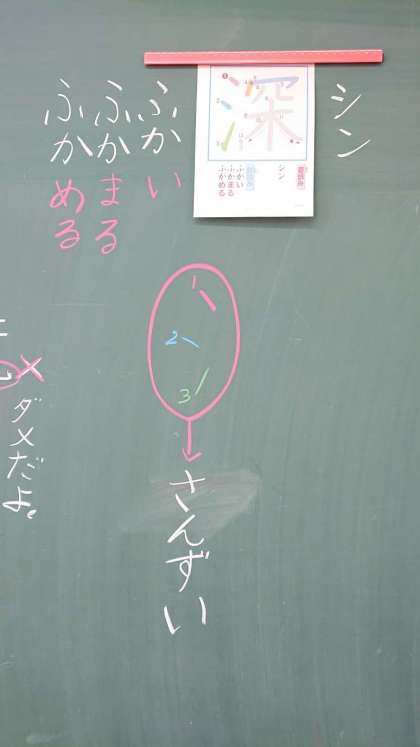 シン
ふかい
ふかまる
ふかめる
深
音読み
シン
訓読み
ふかい
ふかまる
ふかめる
1
2
3
さんずい
×
ダメだよ。